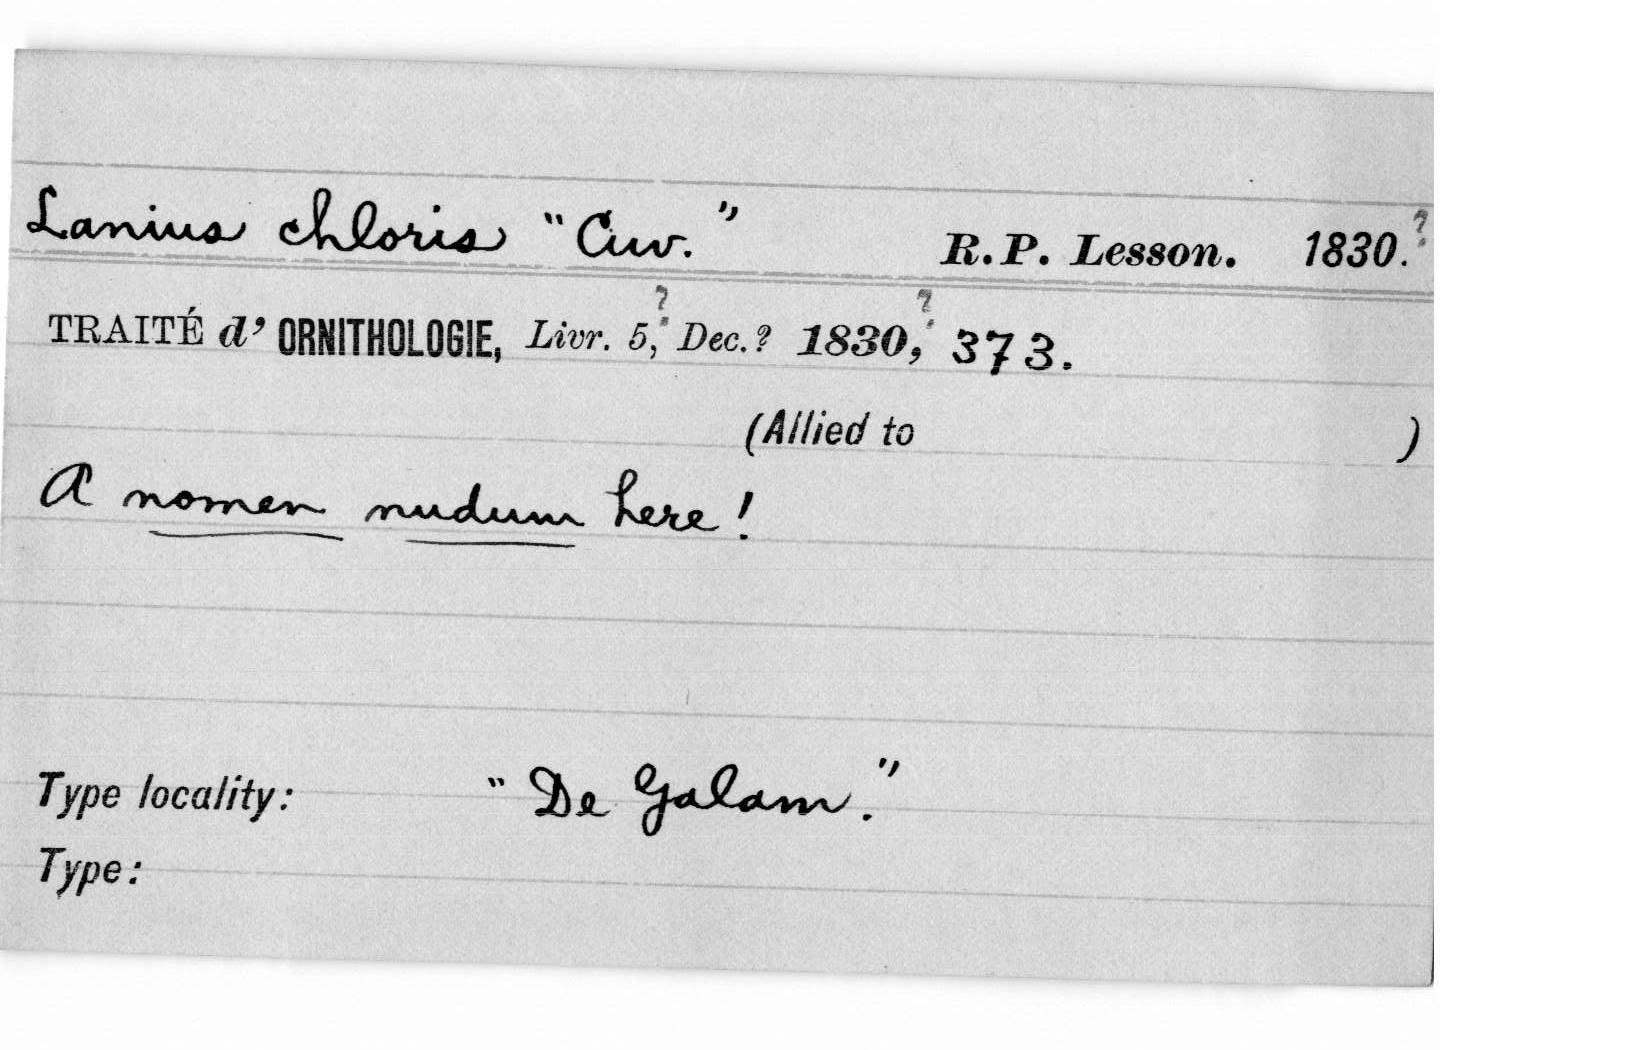 Lanius chloris "Cuv." R.P. Lesson. 1830.?
TRAITÉ d' ORNITHOLOGIE, Livr. 5,? Dec.? 1830,? 373.
(Allied to )
A nomen nudum here!
Type locality: "De Galam."
Type: